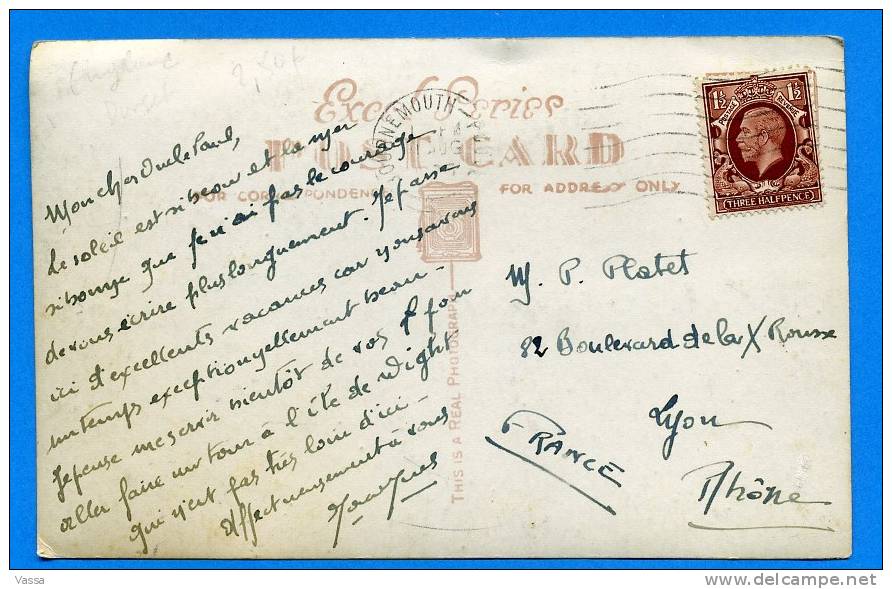 England
Dorset
2,50f
Excel Series
POST CARD
FOR CORRESPONDENCE
FOR ADDRESS ONLY
THIS IS A REAL PHOTOGRAPH
BOURNEMOUTH
1½ 1½
POSTAGE REVENUE
THREE HALFPENCE
Mon cher Oncle Paul,
Le soleil est si beau et la mer
si bonne que je n'ai pas le courage
de vous écrire plus longuement. Je passe
ici d'excellentes vacances car nous avons
un temps exceptionnellement beau -
Je pense me servir bientôt de vos pour
aller faire un tour à l'île de Wight
qui n'est pas très loin d'ici -
Affectueusement à vous
Jacques
M. P. Platet
82 Boulevard de la X Rousse
Lyon
FRANCE
Rhône
Vassa
www.delcampe.net